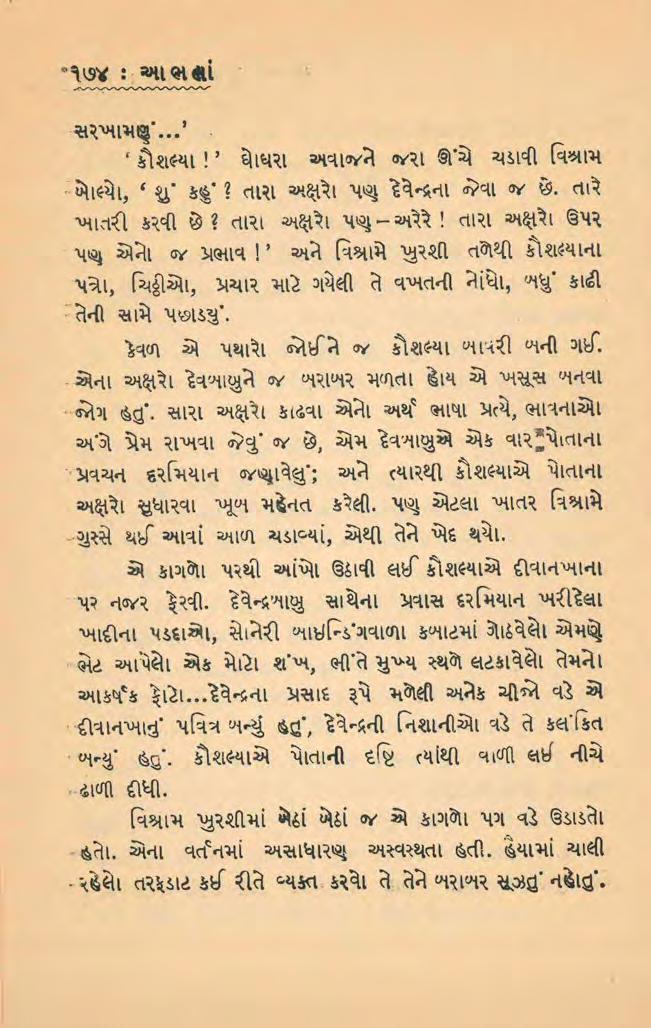 ૧૭૪ : આભલાં
સરખામણું...’
‘કૌશલ્યા !’ ઘોઘરા અવાજને જરા ઊંચે ચડાવી વિશ્રામ
બોલ્યો, ‘ શું કહું ? તારા અક્ષરો પણ દેવેન્દ્રના જેવા જ છે. તારે
ખાતરી કરવી છે ? તારા અક્ષરો પણ – અરેરે ! તારા અક્ષરો ઉપર
પણ એનો જ પ્રભાવ !’ અને વિશ્રામે ખુરશી તળેથી કૌશલ્યાના
પત્રો, ચિઠ્ઠીઓ, પ્રચાર માટે ગયેલી તે વખતની નોંધો, બધું કાઢી
તેની સામે પછાડ્યું.
કેવળ એ પથારો જોઈને જ કૌશલ્યા બાવરી બની ગઈ.
એના અક્ષરો દેવબાબુને જ બરાબર મળતા હોય એ ખસૂસ બનવા
જોગ હતું. સારા અક્ષરો કાઢવા એનો અર્થ ભાષા પ્રત્યે, ભાવનાઓ
અંગે પ્રેમ રાખવા જેવું જ છે, એમ દેવબાબુએ એક વાર પોતાના
પ્રવચન દરમિયાન જણાવેલું; અને ત્યારથી કૌશલ્યાએ પોતાના
અક્ષરો સુધારવા ખૂબ મહેનત કરેલી. પણ એટલા ખાતર વિશ્રામે
ગુસ્સે થઈ આવાં આળ ચડાવ્યાં, એથી તેને ખેદ થયો.
એ કાગળો પરથી આંખો ઉઠાવી લઈ કૌશલ્યાએ દીવાનખાના
પર નજર ફેરવી. દેવેન્દ્રબાબુ સાથેના પ્રવાસ દરમિયાન ખરીદેલા
ખાદીના પડદાઓ, સોનેરી બાઇન્ડિંગવાળા કબાટમાં ગોઠવેલો એમણે
ભેટ આપેલો એક મોટો શંખ, ભીંતે મુખ્ય સ્થળે લટકાવેલો તેમનો
આકર્ષક ફોટો...દેવેન્દ્રના પ્રસાદ રૂપે મળેલી અનેક ચીજો વડે એ
દીવાનખાનું પવિત્ર બન્યું હતું, દેવેન્દ્રની નિશાનીઓ વડે તે કલંકિત
બન્યું હતું. કૌશલ્યાએ પોતાની દૃષ્ટિ ત્યાંથી વાળી લઈ નીચે
ઢાળી દીધી.
વિશ્રામ ખુરશીમાં બેઠાં બેઠાં જ એ કાગળો પગ વડે ઉડાડતો
હતો. એના વર્તનમાં અસાધારણ અસ્વસ્થતા હતી. હૈયામાં ચાલી
રહેલો તરફડાટ કઈ રીતે વ્યક્ત કરવો તે તેને બરાબર સૂઝતું નહોતું.